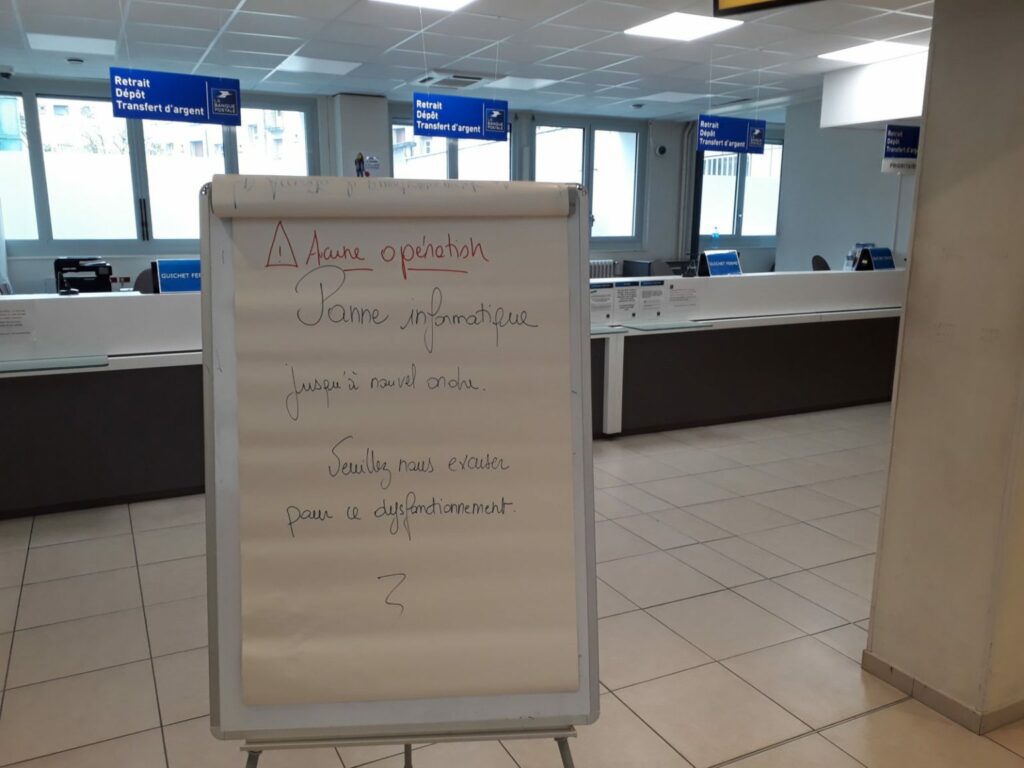 Retrait
Dépôt
Transfert d'argent
LA BANQUE POSTALE
Retrait
Dépôt
Transfert d'argent
LA BANQUE POSTALE
Retrait
Dépôt
Transfert d'argent
Retrait
Dépôt
Transfert d'argent
PRIORITAIRE
GUICHET FER
GUICHET
⚠ Aucune opération
Panne informatique
jusqu'à nouvel ordre.
Veuillez nous excuser
pour ce dysfonctionnement.